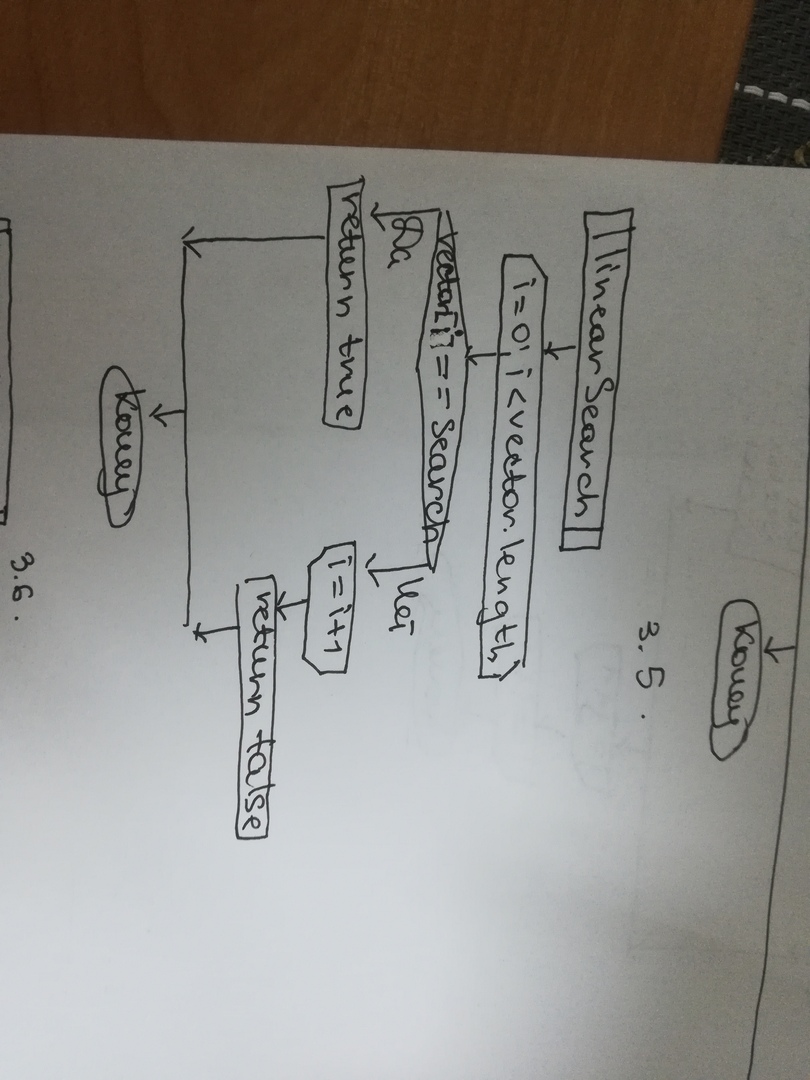 Конец
3.5.
linearSearch
i=0; i<vector.length
vector[i]==search
Да
Нет
return true
i=i+1
return false
Конец
3.6.